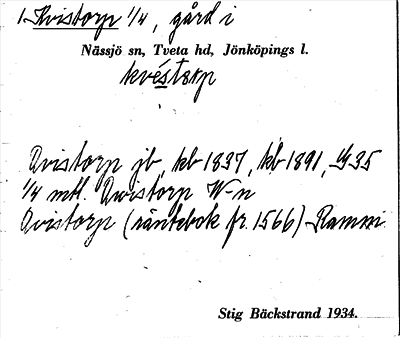 1. Kvistorp 1/4, gård i
Nässjö sn, Tveta hd, Jönköpings l.
kvéstorp
Qvistorp jb, kb 1837, kb 1891, G 35
1/4 mtl. Qwistorp W-n
Qvistorp (räntebok fr. 1566) Ramm
Stig Bäckstrand 1934.